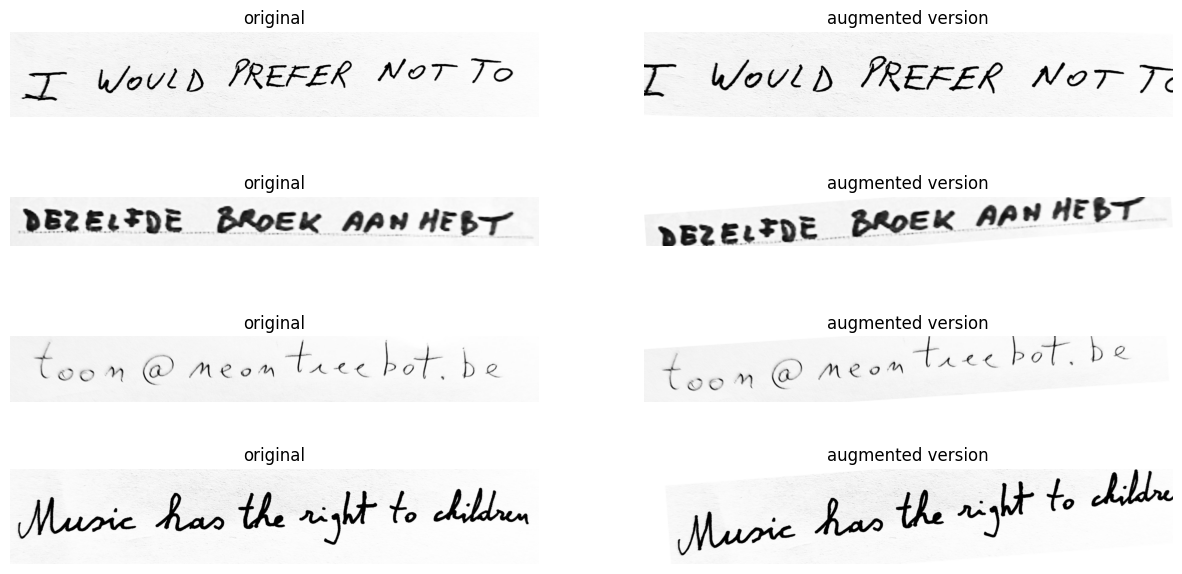 original
augmented version
I WOULD PREFER NOT TO
I WOULD PREFER NOT TO
original
augmented version
DEZELFDE BROEK AAN HEBT
DEZELFDE BROEK AAN HEBT
original
augmented version
toon@neontreebot.be
toon@neontreebot.be
original
augmented version
Music has the right to children
Music has the right to childre